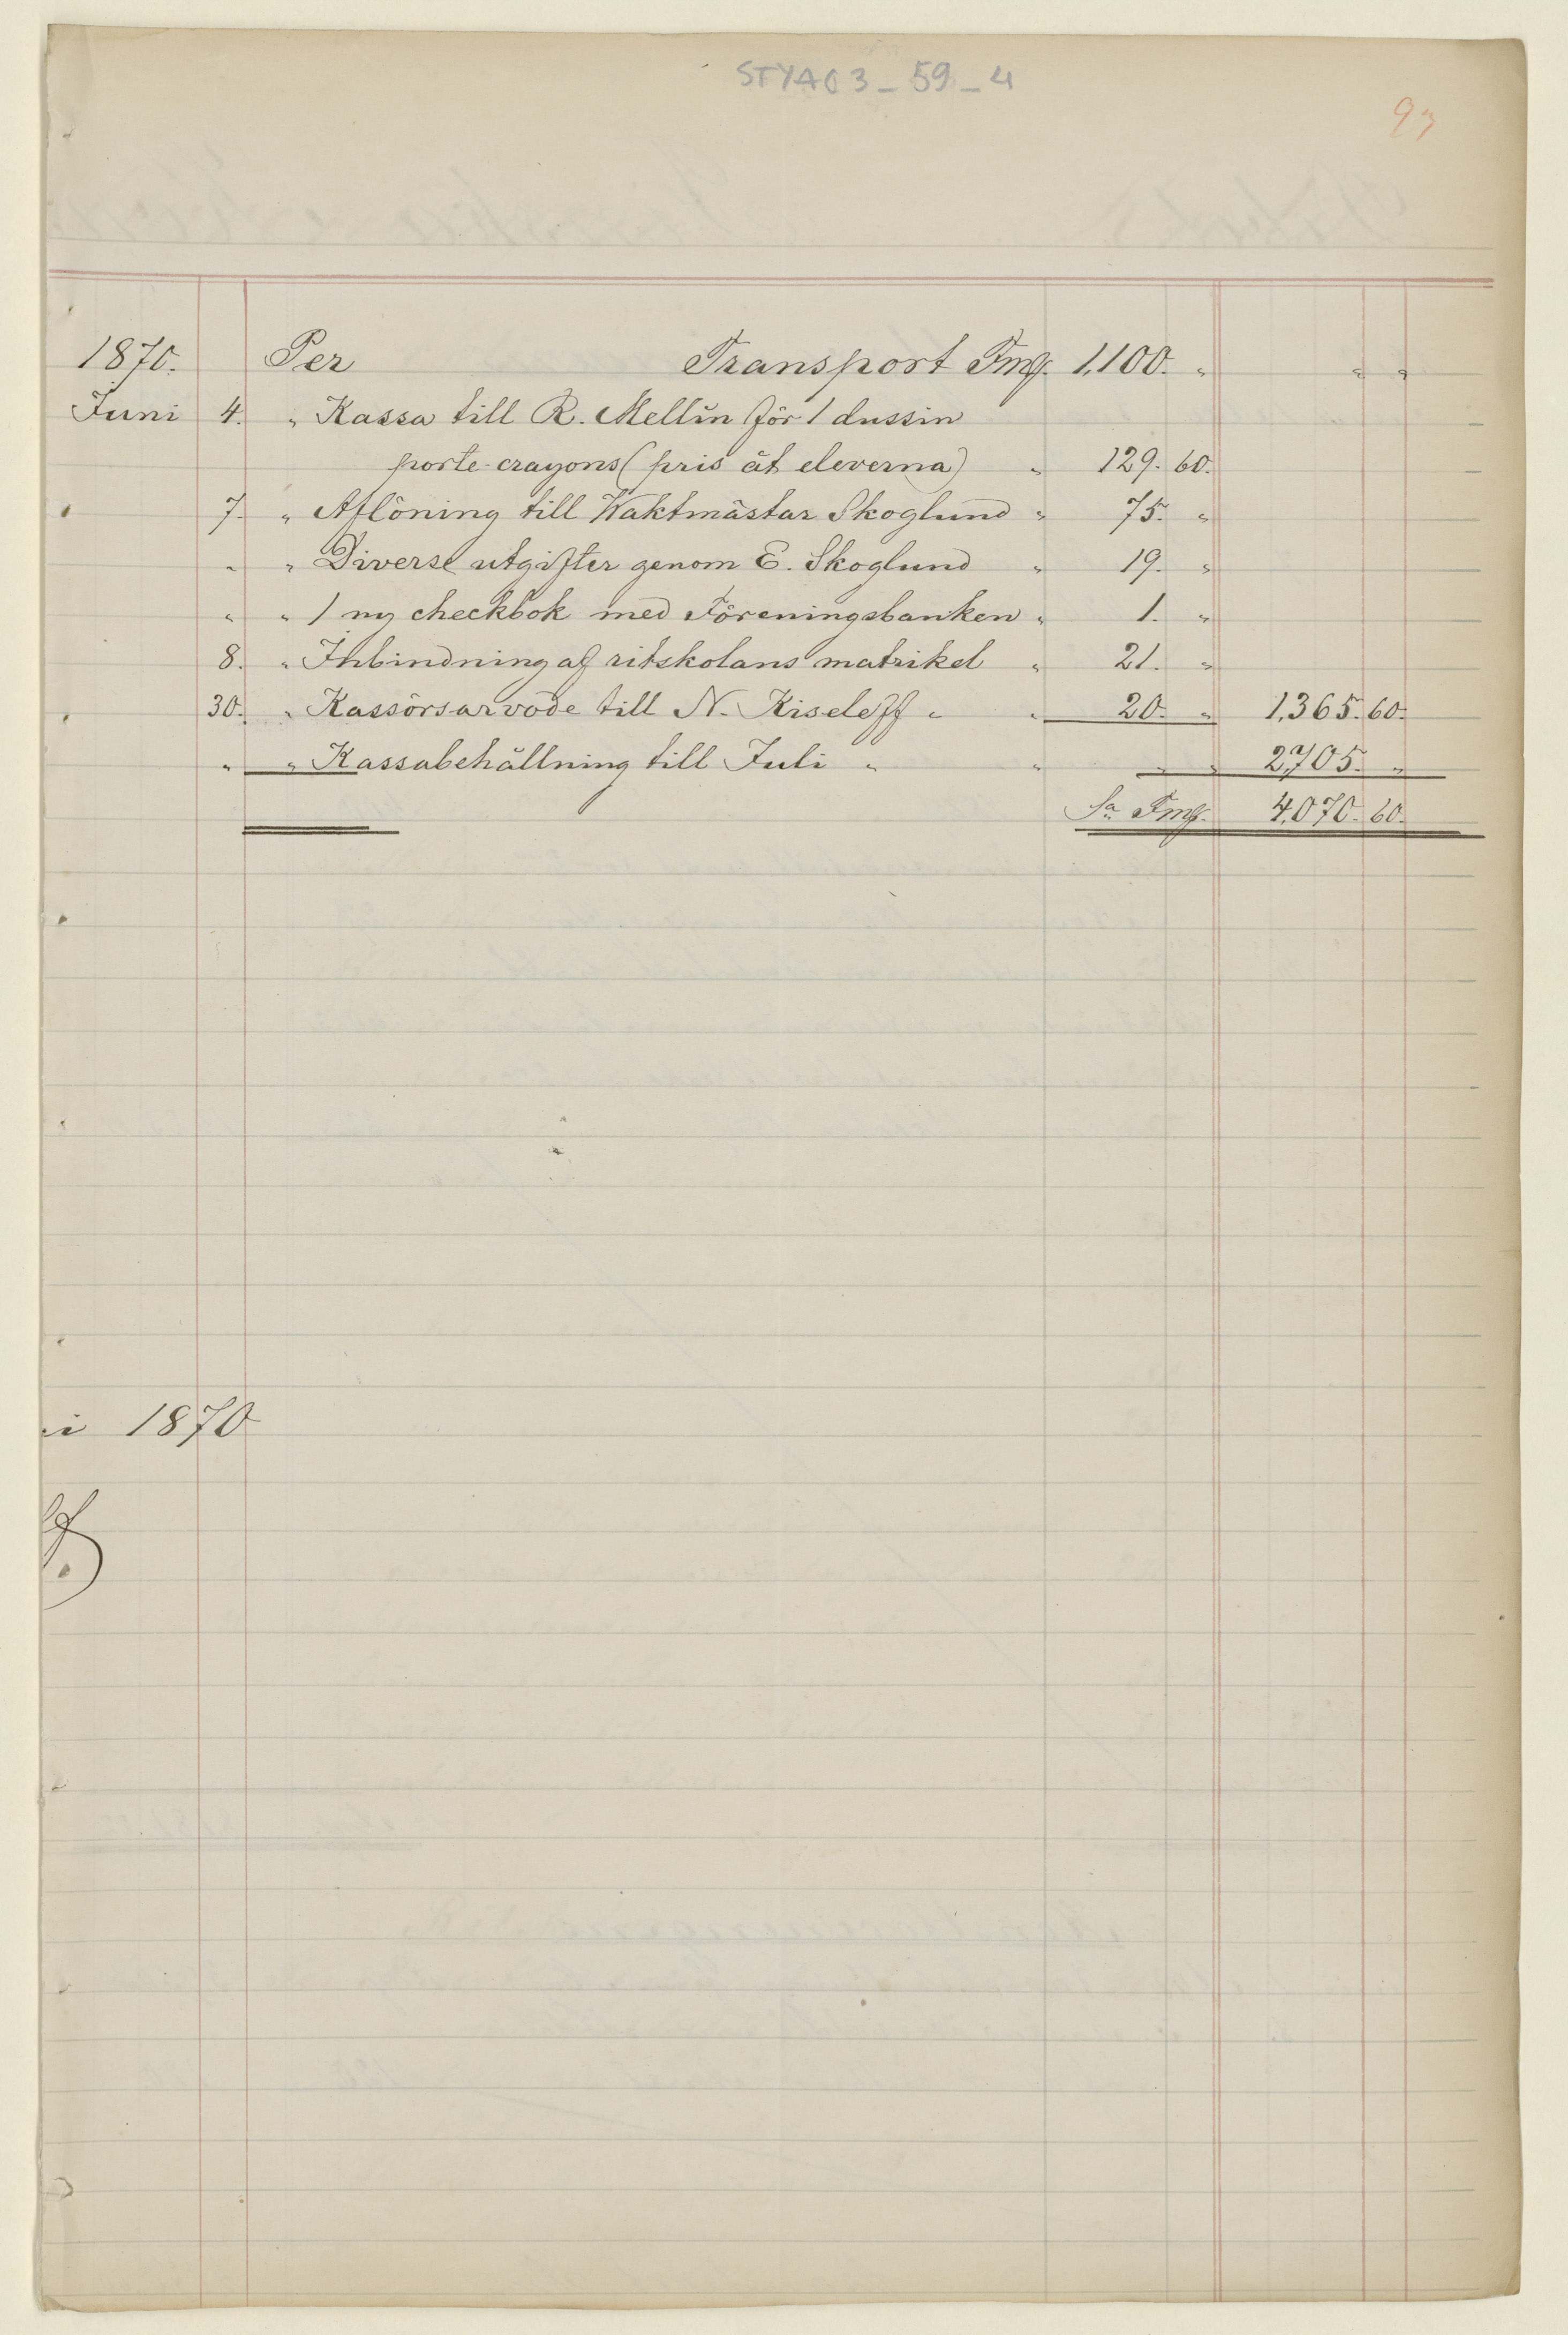 STYAC3_59_4
93
1870. Per Transport Fmg. 1,100. " " "
Juni 4. " Kassa till R. Mellin för 1 dussin
porte-crayons (pris åt eleverna) " 129. 60.
7. " Aflöning till Waktmästar Skoglund " 75. "
" " Diverse utgifter genom E. Skoglund " 19. "
" " 1 ny checkbok med Föreningsbanken " 1. "
8. " Inbindning af ritskolans matrikel " 21. "
30. " Kassörsarvode till N. Kiseleff " " 20. " 1,365. 60.
" " Kassabehållning till Juli " " " " 2,705. "
Sa Fmg. 4,070. 60.
i 1870